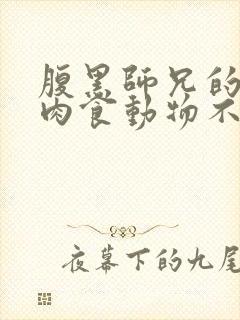 腹黑師兄的
肉食動物不
夜幕下的九尾